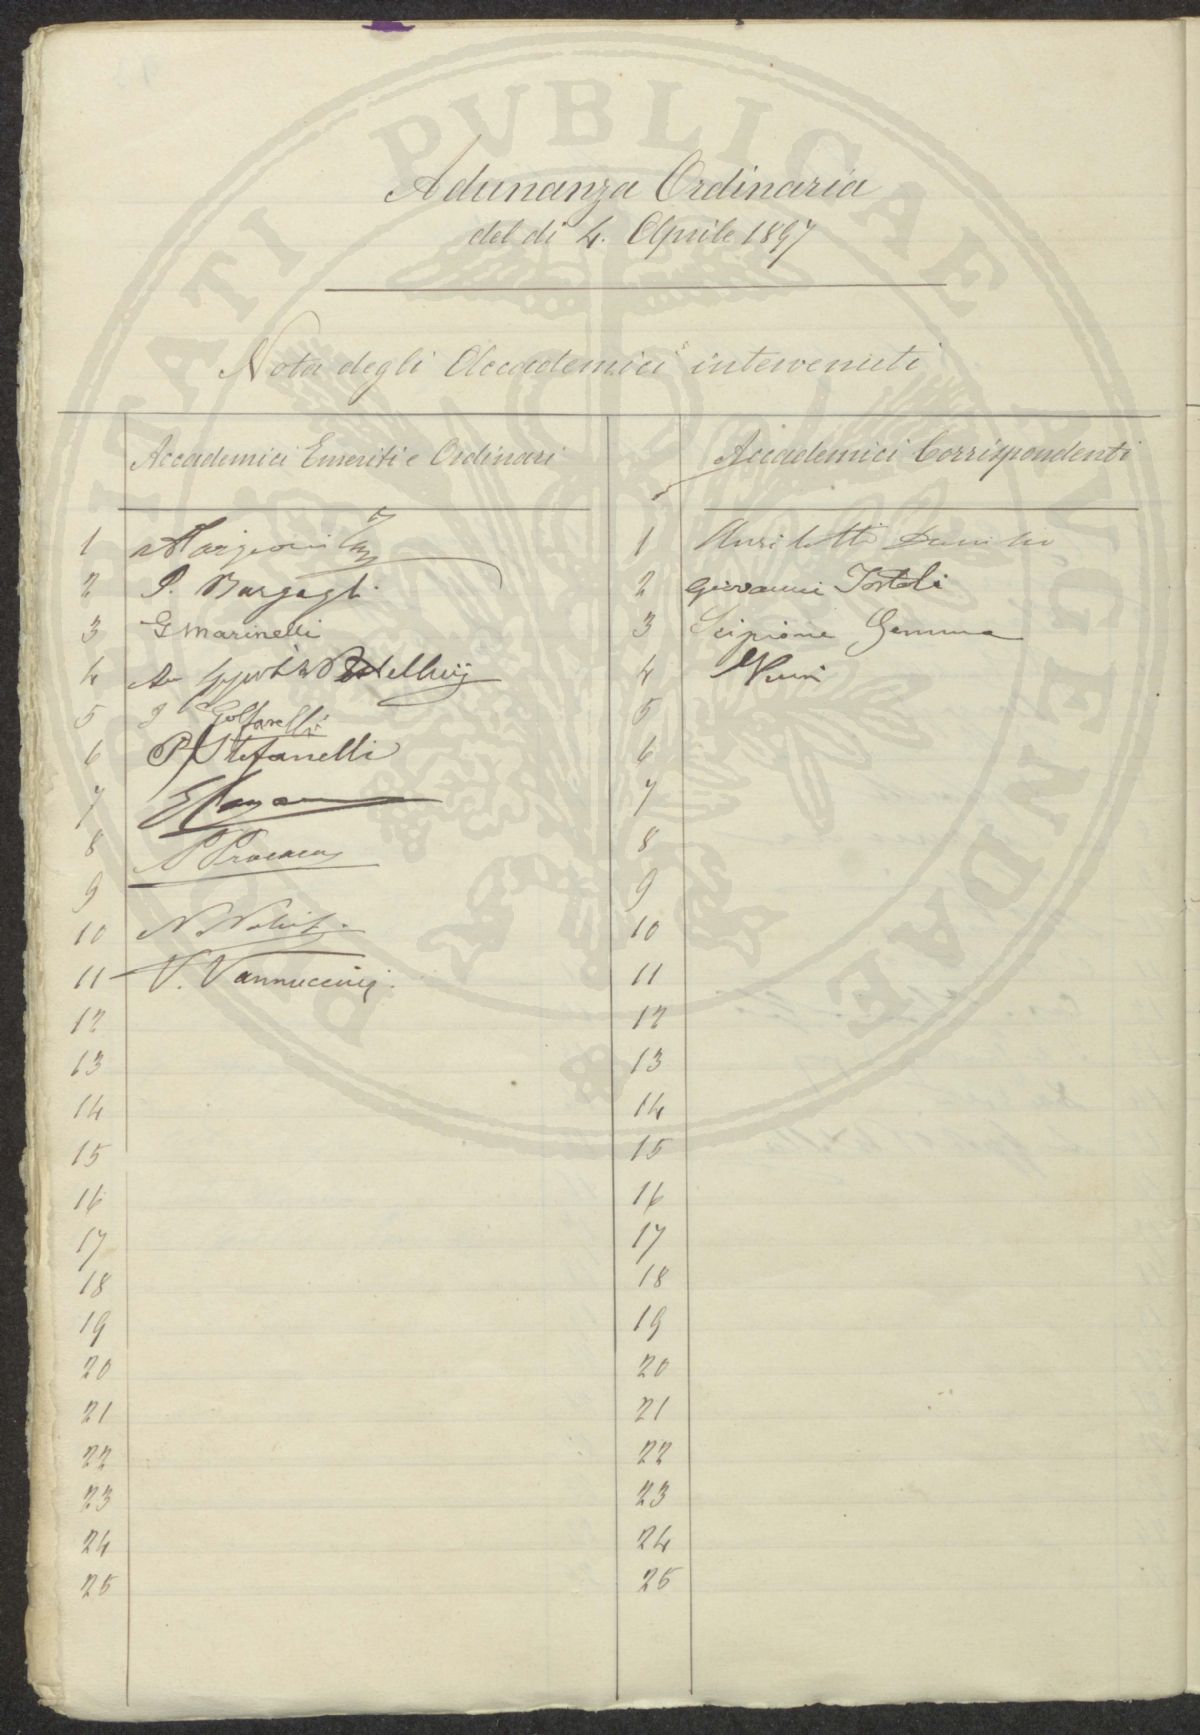 Adunanza Ordinaria
del dì 4. Aprile 1897
Nota degli Accademici intervenuti
Accademici Emeriti e Ordinari
1
2 P. Bargagli
3 G Marinelli
4
5 Golfarelli
6 P. Stefanelli
7
8
9
10 N.
11 V. Vannuccini
12
13
14
15
16
17
18
19
20
21
22
23
24
25
Accademici Corrispondenti
1
2 Giovanni Tortoli
3 Scipione Gemma
4
5
6
7
8
9
10
11
12
13
14
15
16
17
18
19
20
21
22
23
24
25
PATI PVBLICAE AVGENDAE